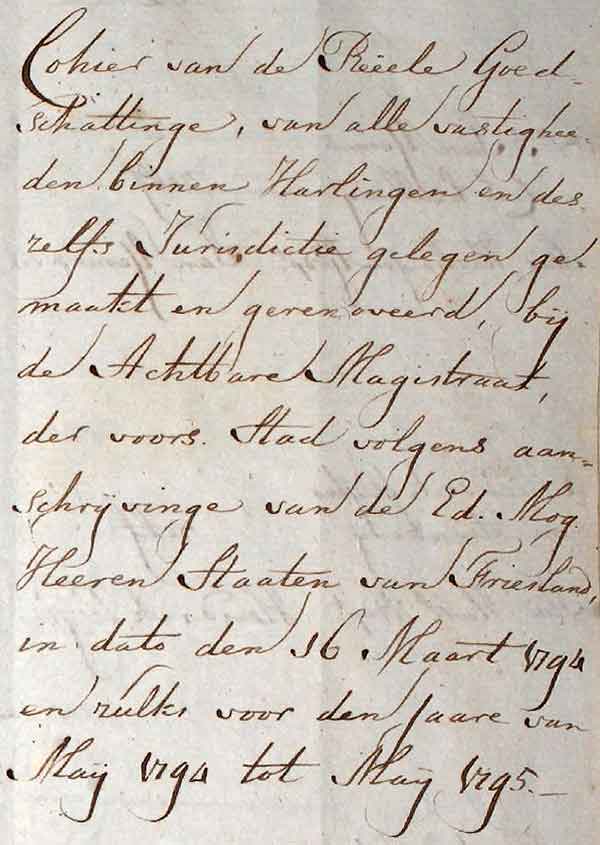 Cohier van de Reëele Goed-
schattinge, van alle vastighee-
den binnen Harlingen en des
zelfs Jurisdictie gelegen ge-
maakt en gerenoveerd, bij
de Achtbare Magistraat,
der voors. Stad volgens aan-
schrijvinge van de Ed. Mog.
Heeren Staaten van Friesland,
in dato den 16 Maart 1794
en zulks voor den jaare van
Maij 1794 tot Maij 1795.—